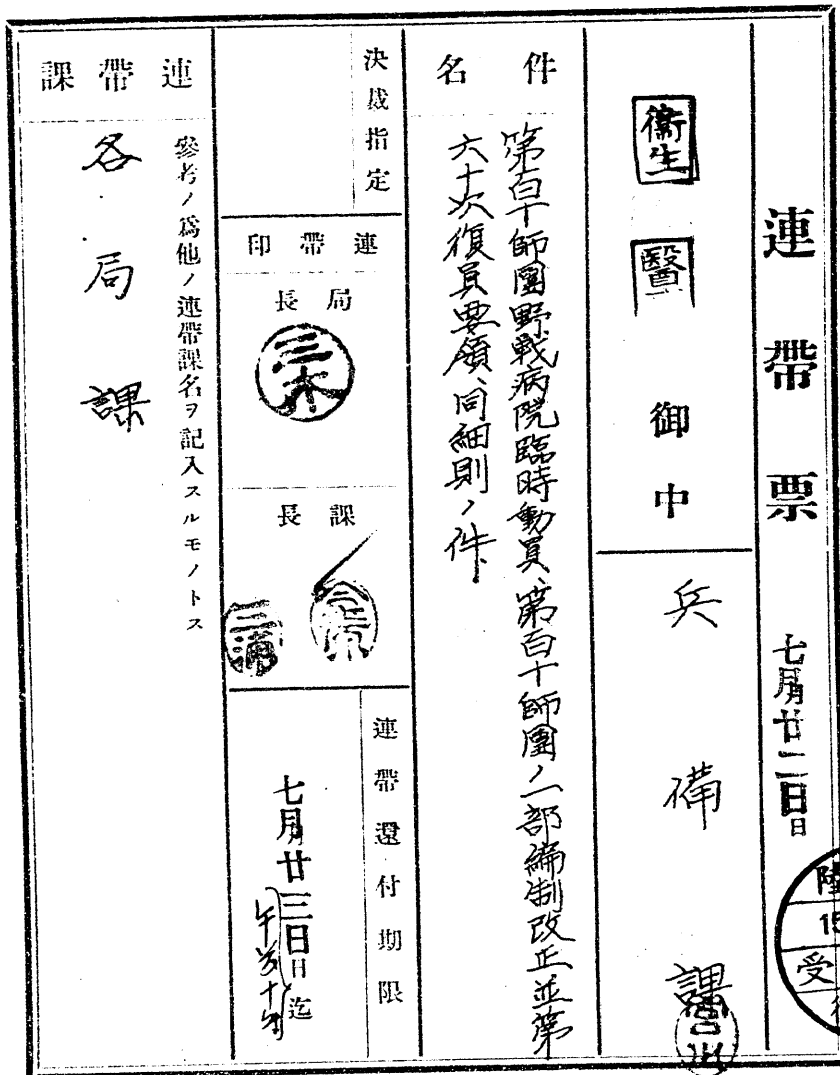 連帶票 七月廿二日日
陸
15
受
衞生 醫 御中
兵備課
件名
第百十師團野戰病院臨時動員、第百十師團ノ一部編制改正並第
六十次復員要領、同細則ノ件
決裁指定
連帶印
局長
三木
課長
三浦
連帶還付期限
七月廿三日日迄
午前十時
連帶課
參考ノ爲他ノ連帶課名ヲ記入スルモノトス
各局課